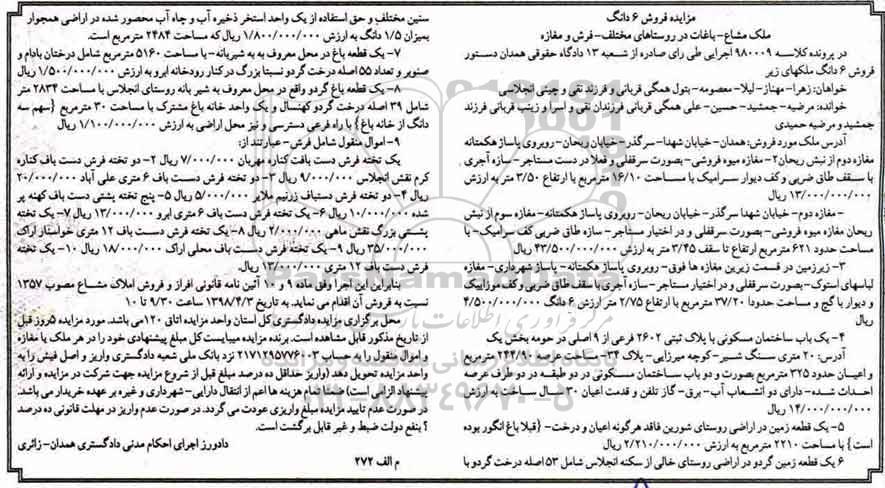 مزایده فروش ۶ دانگ
ملک مشاع- باغات در روستاهای مختلف- فرش و مغازه
در پرونده کلاسه ۹۸۰۰۰۹ اجرایی طی رای صادره از شعبه ۱۳ دادگاه حقوقی همدان دستور
فروش ۶ دانگ ملکهای زیر
خواهان: زهرا- مهناز- لیلا- معصومه- بتول همگی قربانی و فرزند نقی و چیتی انجلاسی
خوانده: مرضیه- جمشید- حسین- علی همگی قربانی فرزندان نقی و اسرا و زینب قربانی فرزند
جمشید و مرضیه حمیدی
آدرس ملک مورد فروش: همدان- خیابان شهدا- سرگذر- خیابان ریحان- روبروی پاساژ هکمتانه
مغازه دوم از نبش ریحان ۲- مغازه میوه فروشی- بصورت سرقفلی و فعلا در دست مستاجر- سازه آجری
با سقف طاق ضربی و کف دیوار سرامیک با مساحت ۱۶/۱۰ مترمربع با ارتفاع ۳/۵۰ متر به ارزش
۱۳/۰۰۰/۰۰۰/۰۰۰ ریال
- مغازه دوم- خیابان شهدا سرگذر- خیابان ریحان- روبروی پاساژ هکمتانه- مغازه سوم از نبش
ریحان مغازه میوه فروشی- بصورت سرقفلی و در اختیار مستاجر- سازه طاق ضربی و کف سرامیک- با
مساحت حدود ۶۲۱ مترمربع ارتفاع تا سقف ۳/۴۵ متر به ارزش ۴۳/۵۰۰/۰۰۰/۰۰۰ ریال
۳- زیرزمین در قسمت زیرین مغازه ها فوق- روبروی پاساژ هکمتانه- پاساژ شهرداری- مغازه
لباسهای استوک- بصورت سرقفلی و در اختیار مستاجر- سازه آجری با سقف طاق ضربی و کف موزاییک
و دیوار با گچ و مساحت حدودا ۳۷/۲۰ مترمربع با ارتفاع ۲/۷۵ متر ارزش ۶ دانگ ۴/۵۰۰/۰۰۰/۰۰۰
ریال
۴- یک باب ساختمان مسکونی با پلاک ثبتی ۲۶۰۲ فرعی از ۹ اصلی در حومه بخش یک
آدرس: ۲۰ متری سنگ شیر- کوچه میرزایی- پلاک ۳۴- مساحت عرصه ۲۴۴/۹۰ مترمربع
و اعیان حدود ۳۲۵ مترمربع بصورت و دو باب ساختمان مسکونی در دو طبقه در دو طرف عرصه
احداث شده- دارای دو انشعاب آب- برق- گاز تلفن و قدمت اعیان ۳۰ سال ساخت به ارزش
۱۴/۰۰۰/۰۰۰/۰۰۰ ریال
۵- یک قطعه زمین در اراضی روستای شورین فاقد هرگونه اعیان و درخت- {قبلا باغ انگور بوده
است} با مساحت ۲۲۱۰ مترمربع به ارزش ۲/۲۱۰/۰۰۰/۰۰۰ ریال
۶ یک قطعه زمین گردو در اراضی روستای خالی از سکنه انجلاس شامل ۵۳ اصله درخت گردو با
سنین مختلف و حق استفاده از یک واحد استخر ذخیره آب و چاه آب محصور شده در اراضی همجوار
بمیزان ۱/۵ دانگ به ارزش ۱/۸۰۰/۰۰۰/۰۰۰ ریال که مساحت ۲۴۸۴ مترمربع است.
۷- یک قطعه باغ در محل معروف به به شیربانه- با مساحت ۵۱۶۰ مترمربع شامل درختان بادام و
صنوبر و تعداد ۵۵ اصله درخت گردو نسبتا بزرگ در کنار رودخانه ابرو به ارزش ۱/۵۰۰/۰۰۰/۰۰۰ ریال
۸- یک قطعه باغ گردو واقع در محل معروف به شیر بانه روستای انجلاس با مساحت ۲۸۳۴ متر
شامل ۳۹ اصله درخت گردو کهنسال و یک واحد خانه باغ مشترک با مساحت ۳۰ مترمربع {سهم سه
دانگ از خانه باغ} با راه فرعی دسترسی و نیز محل اراضی به ارزش ۱/۱۰۰/۰۰۰/۰۰۰ ریال
۹- اموال منقول شامل فرش- عبارتند از:
یک تخته فرش دست بافت کناره مهربان ۷/۰۰۰/۰۰۰ ریال ۲- دو تخته فرش دست باف کناره
کرم نقش انجلاس ۹/۰۰۰/۰۰۰ ریال ۳- دو تخته فرش دست باف ۶ متری علی آباد ۲۰/۰۰۰/۰۰۰
ریال ۴- دو تخته فرش دستباف زرنیم ملایر ۵/۰۰۰/۰۰۰ ریال ۵- پنج تخته پشتی دست باف کهنه پر
شده ۱۰/۰۰۰/۰۰۰ ریال ۶- یک تخته فرش دست باف ۶ متری ابرو ۱۳/۰۰۰/۰۰۰ ریال ۷- یک تخته
پشتی بزرگ نقش ماهی ۲/۰۰۰/۰۰۰ ریال ۸- یک تخته فرش دست باف ۱۲ متری خوانسار اراک
۳۵/۰۰۰/۰۰۰ ریال ۹- یک تخته فرش دست باف محلی اراک ۱۸/۰۰۰/۰۰۰ ریال ۱۰- یک تخته
فرش دست باف ۱۲ متری ۱۳/۰۰۰/۰۰۰ ریال
بنابراین این اجرا وفق ماده ۹ و ۱۰ آئین نامه قانونی افراز و فروش املاک مشاع مصوب ۱۳۵۷
نسبت به فروش آن اقدام می نماید. به تاریخ ۱۳۹۸/۴/۳ ساعت ۹/۳۰ تا ۱۰
محل برگزاری مزایده دادگستری کل استان واحد مزایده اتاق ۱۲۰ می باشد. مورد مزایده ۵ روز قبل
از تاریخ مذکور قابل مشاهده است. برنده مزایده میبایست کل مبلغ پیشنهادی خود را در هر ملک یا مغازه
و اموال منقول را به حساب ۲۱۷۱۲۹۵۷۷۶۰۰۳ نزد بانک ملی شعبه دادگستری واریز و اصل فیش را به
واحد مزایده تحویل دهد (واریز حداقل ده درصد مبلغ قبل از شروع مزایده جهت شرکت در مزایده و ارائه
پیشنهاد الزامی است) ضمنا تمام هزینه ها اعم از انتقال دارایی- شهرداری و غیره بر عهده خریدار می باشد.
در صورت عدم تایید مزایده مبلغ واریزی عودت می گردد. در صورت عدم واریز در مهلت قانونی ده درصد
؟ بنفع دولت ضبط و غیر قابل برگشت است.
دادورز اجرای احکام مدنی دادگستری همدان- زائری
م الف ۲۷۲